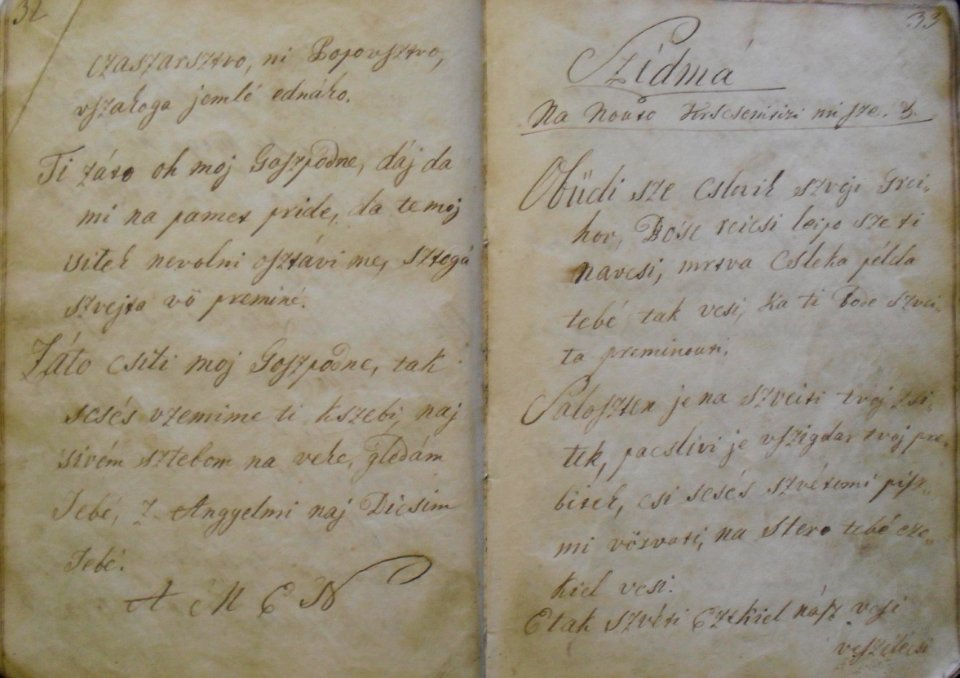 32
czaszarsztvo, ni Bojovsztvo,
vszakoga jemlé ednáko.
Ti záto oh moj Goszpodne, dáj da
mi na pamet pride, da te moj
sitek nevolni osztávi me, sztoga
szvejta vö preminé.
Záto csiti moj Goszpodne, tak
scsés vzemime ti kszebi, naj
sivém sztebom na veke, gledám
Tebé, z Angyelmi naj Dicsim
Tebé.
AMEN
33
Szídma
Na Nouto
Obüdi sze cslovik szvoji Grei-
hov, Bose reicsi leipo sze ti
navcsi, mrtva Csleka példa
tebé tak vcsi, ka ti Bode szvei-
ta preminouti.
Saloszten je na szveiti tvoj zsi-
tek, pacslivi je vszigdar tvoj pre-
bitek, csi scsés szvétemi pisz-
mi vörvati, na stero tebé eze-
kiel vcsi.
Etak szvéti Ezekiel nász vcsi